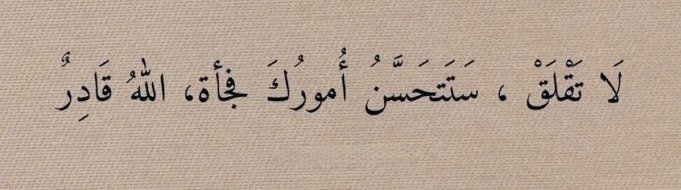 لَا تَقْلَقْ ، سَتَتحَسَّنُ أُمورُكَ فجأة، اللهُ قَادِرٌ